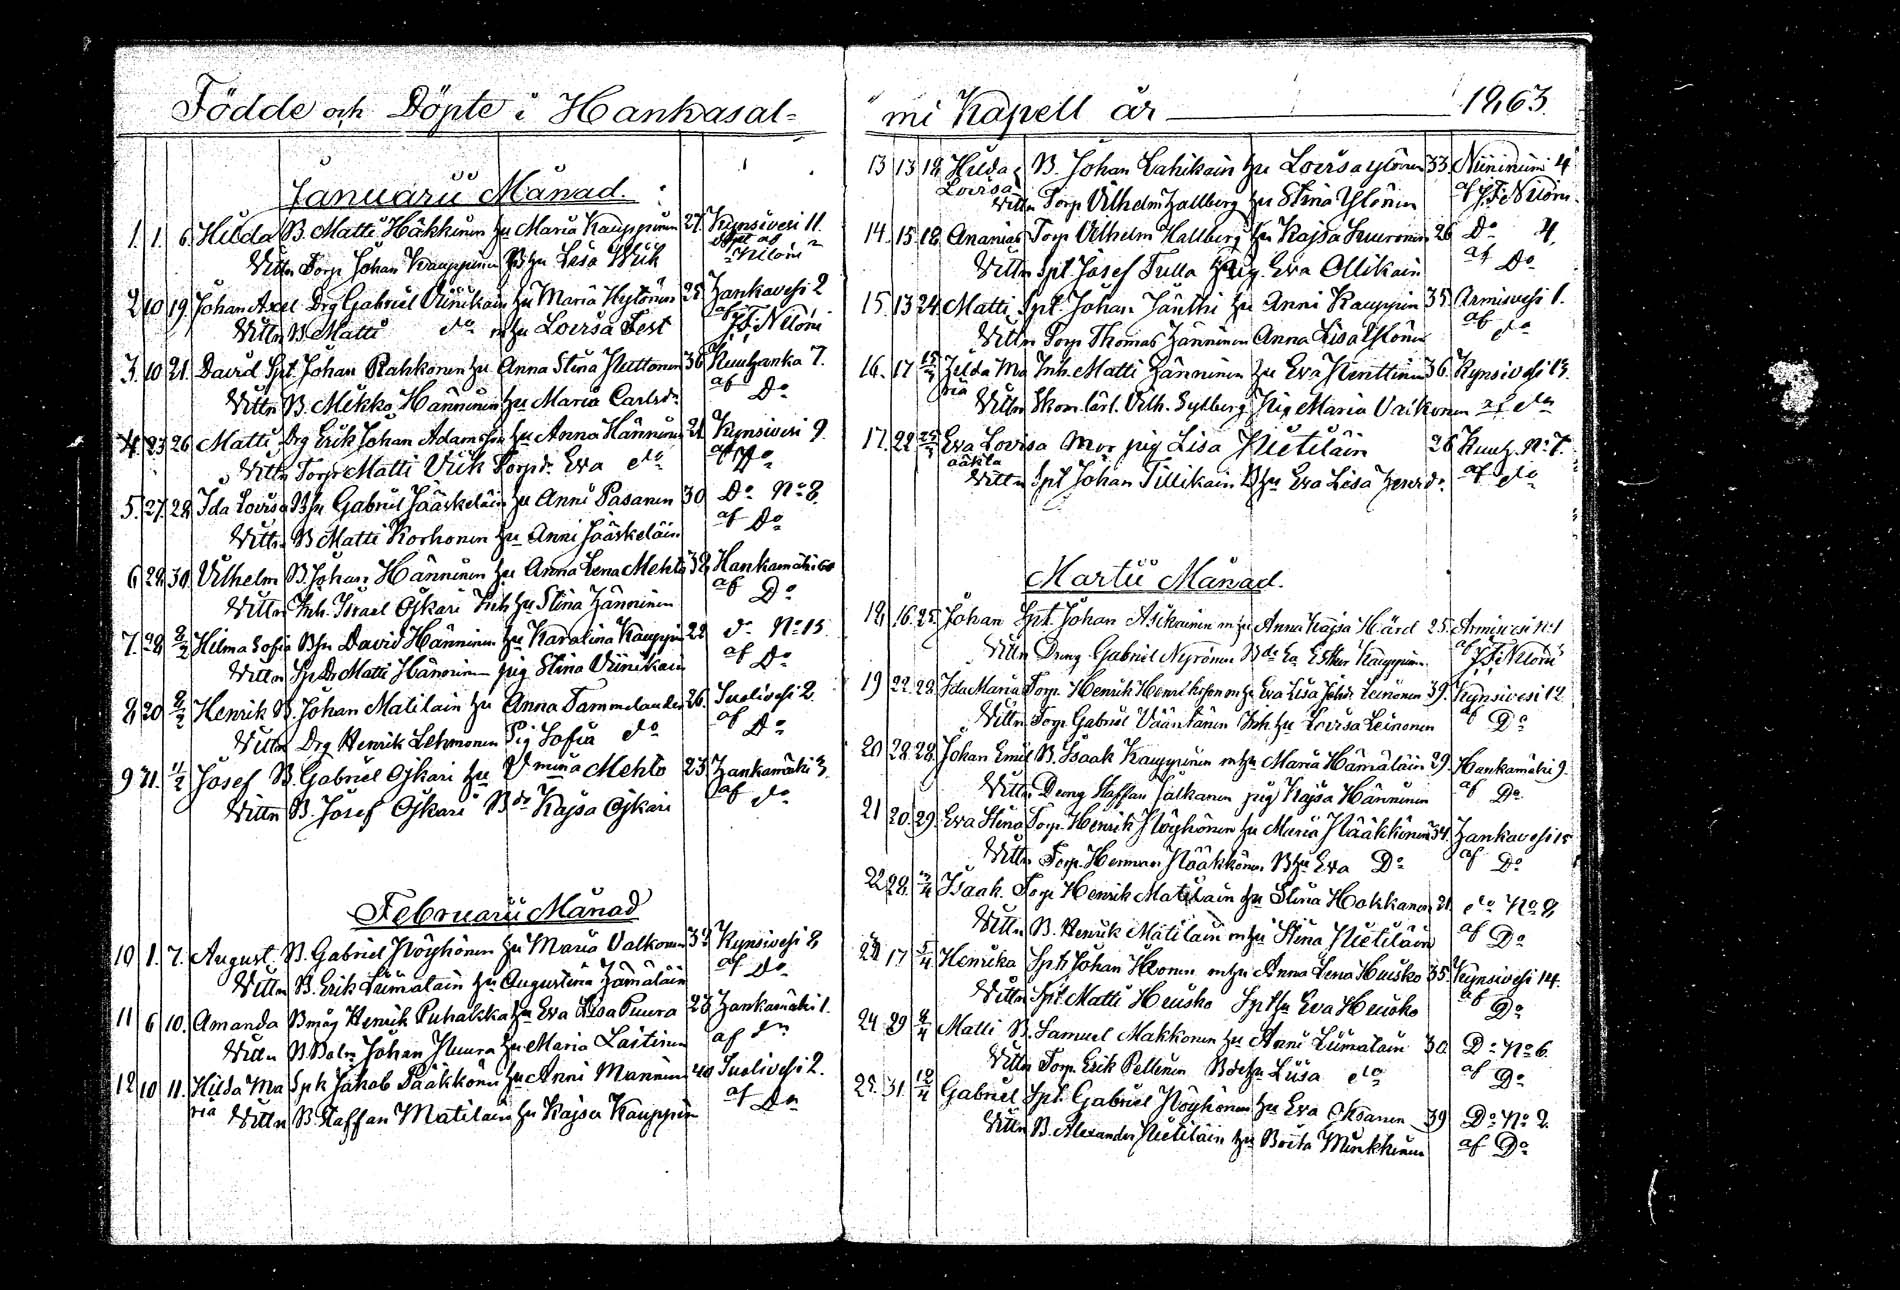 Födde och Döpte i Hankasal-
Januarii Månad.
1. 1. 6. Hilda B. Matti Häkkinen hu Maria Kauppinen 27. Kynsivesi 11.
Vittn Torp Johan Kauppinen hu Lisa Wiik
2 10 19. Johan Axel Drg Gabriel Viinikain hu Maria Hytönen 25. Hankavesi 2
Vittn B. Matti do hu Lovisa Lest af J.F. Niloni
3. 10 21. David Spt. Johan Rahkonen hu Anna Stina Puttonen 36 Kuuhanka 7.
Vittn B. Mikko Hänninen hu Maria Carlsdr af Do
4. 23 26 Matti Drg Erik Johan Adamsson hu Anna Hänninen 21 Kynsivesi 9
Vittn Torp Matti Viik Torpdr Eva do af Do
5. 27. 28. Ida Lovisa Bsn Gabriel Jääskeläin hu Anni Pasanen 30 Do No 8.
Vittn B Matti Korhonen hu Anni Jääskeläin af Do
6 28 30. Vilhelm B. Johan Hänninen hu Anna Lena Mehto 38 Hankamäki
Vittn Inh. Israel Ojkari Inh hu Stina Hänninen af Do
7. 28. 8/2 Helma Sofia Bsn David Hänninen hu Karolina Kauppin 22 do No 15.
Vittn Matti Hänninen pig Stina Viinikain af Do
8 20 8/2 Henrik B. Johan Matilain hu Anna Tammelander 26. Suolivesi 2.
Vittn Drg Henrik Lehmonen Pig Sofia do af Do
9 31. 11/2 Josef B Gabriel Ojkari hu Vmina Mehto 23 Hankamäki 3.
Vittn B. Josef Ojkari Bdr Kajsa Ojkari af do
Februarii Månad
10 1. 7. August. B. Gabriel Pöyhönen hu Maria Valkonen 32 Kynsivesi 8
Vittn B. Erik Liimatain hu Augustina Hämäläin af Do
11 6 10. Amanda Bmåg Henrik Puhakka hu Eva Lisa Puura 23 Hankamäki 1.
Vittn B Johan Puura hu Maria Laitinen af do
12 10 11. Hilda Ma Spt Jakob Pääkkönen hu Anni Manninen 40 Suolivesi 2.
ria Vittn B. Staffan Matilain hu Kajsa Kauppin af Do
mi Kapell år 1863.
13 13 18 Hilda B. Johan Lahikain hu Lovisa Ylönen 33. Niinimäki 4
Lovisa Vittn Torp Vilhelm Hallberg hu Stina Ylönen af J.F. Niloni
14. 15 18. Ananias Torp Vilhelm Hallberg hu Kajsa Suuronen 26 Do 4.
Vittn Spt. Josef Tulla Pig. Eva Ollikain af Do
15. 13 24. Matti Spt. Johan Jantti hu Anni Kauppin 35. Armisvesi 1.
Vittn Torp Thomas Hänninen Anna Lisa Ylönen af do
16. 17 15/3 Hilda Ma Inh. Matti Hänninen hu Eva Penttinen 36. Kynsivesi 13.
ria Vittn Skom. lärl. Vilh. Sylberg Pig Maria Vaikonen af do
17. 22 25/3 Eva Lovisa Mor pig Lisa Pietiläin 26 Kuuh. No 7.
oäkta Vittn Spt Johan Tillikain Bhu Eva Lisa Henrdr. af do
Martii Månad.
18 16. 25. Johan Spt. Johan Asikainen mhu Anna Kajsa Hård 25. Armisvesi No 1
Vittn Dreng Gabriel Nyrönen Bdr Esther Kauppinen af J.F. Niloni
19 22. 28. Ida Maria Torp. Henrik Henriksson mhu Eva Lisa Leinonen 39. Kynsivesi 12.
Vittn Torp Gabriel Väänänen Inh. hu Lovisa Leinonen af Do
20 28. 28. Johan Emil B. Isaak Kauppinen mhu Maria Hämäläin 29. Hankamäki 9.
Vittn Dreng Staffan Jalkanen pig Kajsa Hänninen af Do
21 20. 29. Eva Stina Torp. Henrik Pöyhönen hu Maria Pääkkönen 34. Hankavesi 15
Vittn Torp. Herman Pääkkönen Bhu Eva Do af Do
22 28. 3/4 Isaak. Torp Henrik Matilain hu Stina Hokkanen 21 do No 8
Vittn B. Henrik Matilain mhu Stina Pietiläin af Do
23 17 5/4 Henrika Spt. Johan Ikonen mhu Anna Lena Huisko 35. Kynsivesi 14.
Vittn Spt. Matti Huisko Spthu Eva Huisko af Do
24 29 8/4 Matti B. Samuel Makkonen hu Anni Liimatain 30 Do No 6.
Vittn Torp. Erik Pellinen hu Liisa do af Do
25. 31. 12/4 Gabriel Spt. Gabriel Pöyhönen hu Eva Oksanen 39 Do No 2.
Vittn B. Alexander Pietiläin hu Brita Minkkinen af Do